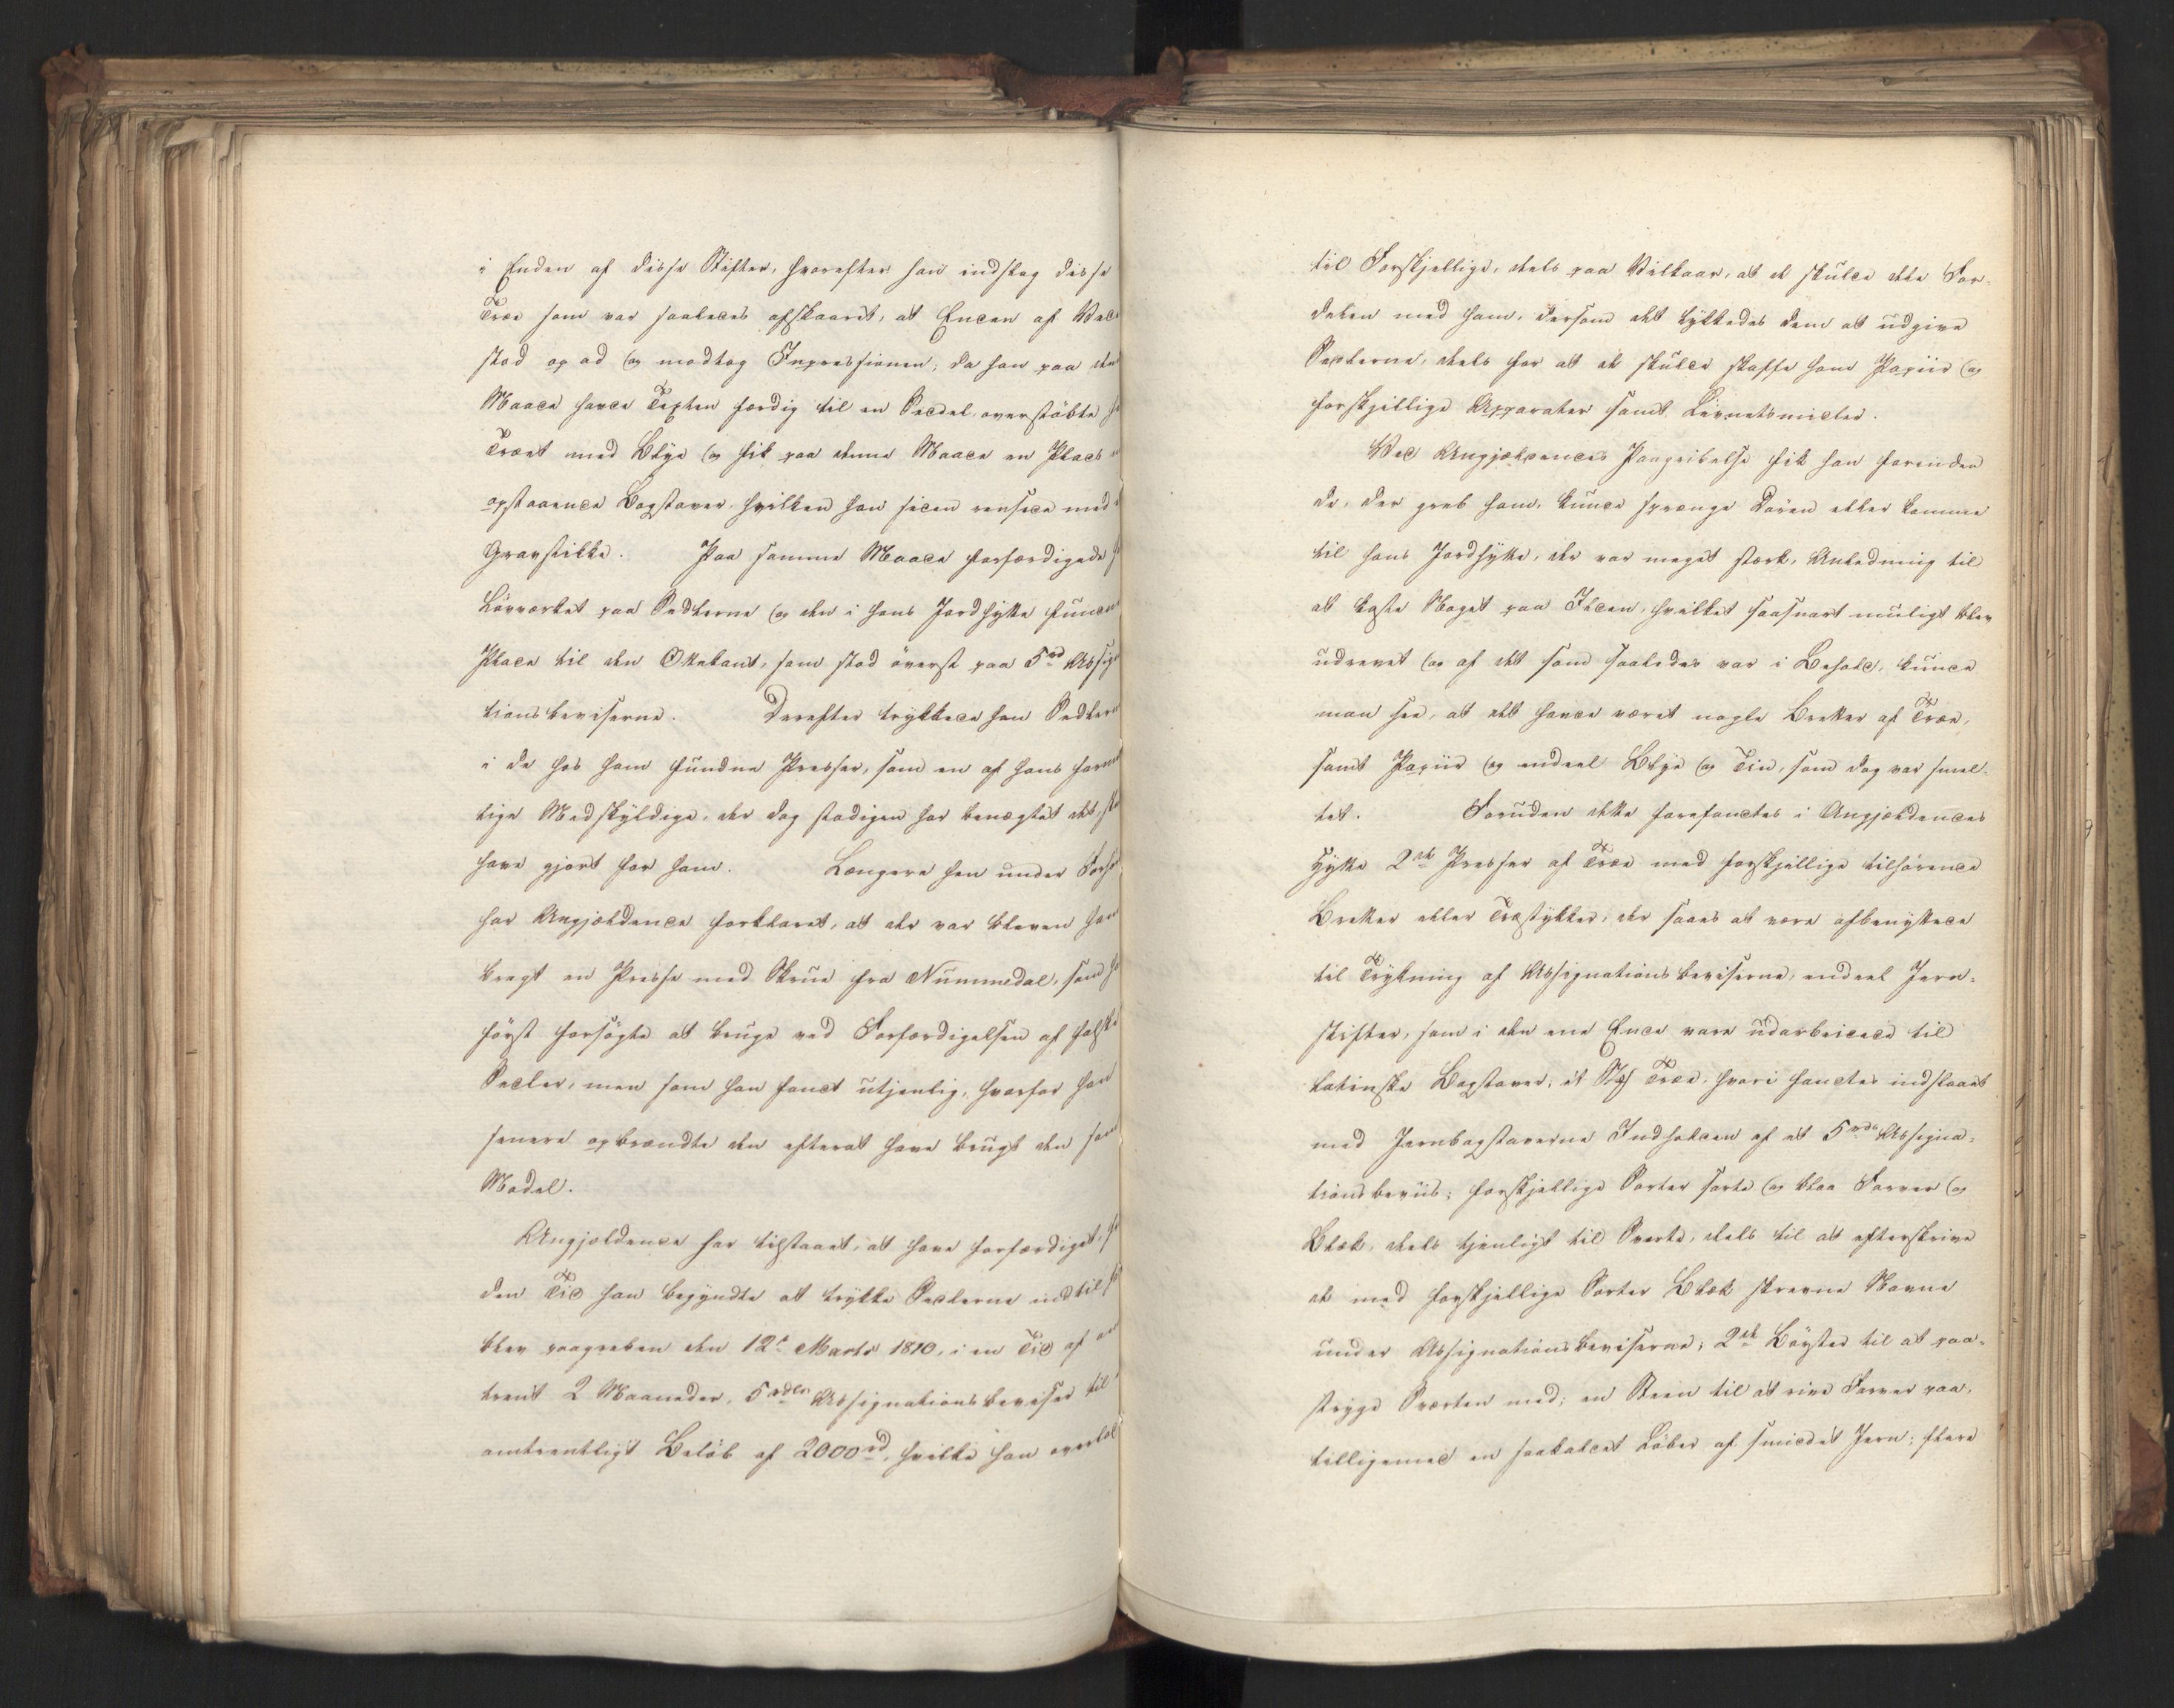 i Enden af disse Stifter, hvorefter han indslog disse
Træe som var saaledes afskaaret, at Enden af Ved
stod op ad og modtog Impressionen; da han paa den
Maade havde Texten færdig til en Seddel, overstöbte
Træet med Blye og fik paa denne Maade en Plade
opstaaende Bogstaver, hvilken han siden rensede med
Gravstikke. Paa samme Maade forfærdigede
Lövværket paa Sedlerne og den i hans Jordhytte fundne
Plade til den Octokant, som stod överst paa 5 rd Assig
tionsbeviserne. Derefter trykkede han Sedlerne
i de hos ham fundne Presser, som en af hans formeent
lige Medskyldige, der dog stadigen har benægtet det, skal
have gjort for ham. Længere hen under Forhör
har Angjældende forklaret, at der var bleven ham
bragt en Presse med Skrue fra Nummedal, som han
först forsögte at bruge ved Forfærdigelsen af falske
Sedler, men som han fandt utjenlig, hvorfor han
senere opbrændte den efterat have brugt den som
Model.
Angjældende har tilstaaet, at have forfærdiget, fra
den Tid han begyndte at trykke Sedlerne indtil han
blev paagreben den 12te Marts 1810, i en Tid af om
trent 2 Maaneder, 5 rdlr Assignationsbeviser til
omtrentligt Belöb af 2000 rd, hvilke han overlod
til Forskjellige, dels paa Vilkaar, at de skulde dele For-
delen med ham, dersom det lykkedes dem at udgive
Sedlerne, dels for at de skulde skaffe ham Papiir og
forskjellige Apparater samt Livnetsmidler.
Ved Angjældendes Paagribelse fik han forinden
de, der greb ham, kunde sprænge Dören eller komme
til hans Jordhytte, der var meget stærk, Anledning til
at kaste Noget paa Ilden, hvilket saasnart muligt blev
udrevet og af det som saaledes var i Behold, kunde
man see, at det havde været nogle Bretter af Træe,
samt Papiir og endeel Blye og Tin, som dog var smel-
tet. Foruden dette forefandtes i Angjældendes
Hytte 2de Presser af Træe med forskjellige tilhörende
Bretter eller Træstykker, der saaes at være afbenyttede
til Trykning af Assignationsbeviserne, endeel Jern-
stifter, som i den ene Ende vare udarbeidede til
latinske Bogstaver, et St: Træe, hvori fandtes indslaaet
med Jernbogstaverne Indholden af et 5 rdlr Assigna-
tionsbeviis; forskjellige Sorter sorte og blaa Farver og
Blæk, dels tjenligt til Sverte, dels til at efterskrive
de med forskjellige Sorter Blæk skrevne Navne
under Assignationsbeviserne; 2de Böster til at paa-
stryge Sverten med; en Steen til at rive Farver paa,
tilligemed en saakaldet Löber af smeddet Jern; flere